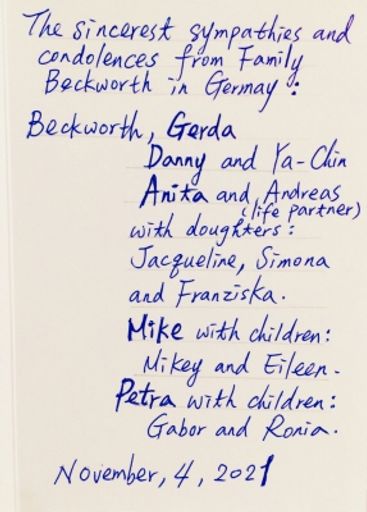 The sincerest sympathies and
condolences from Family
Beckworth in Germay :
Beckworth, Gerda
Danny and Ya-Chin
Anita and Andreas
(life partner)
with doughters :
Jacqueline, Simona
and Franziska.
Mike with children:
Mikey and Eileen.
Petra with children:
Gabor and Ronia.
November, 4, 2021